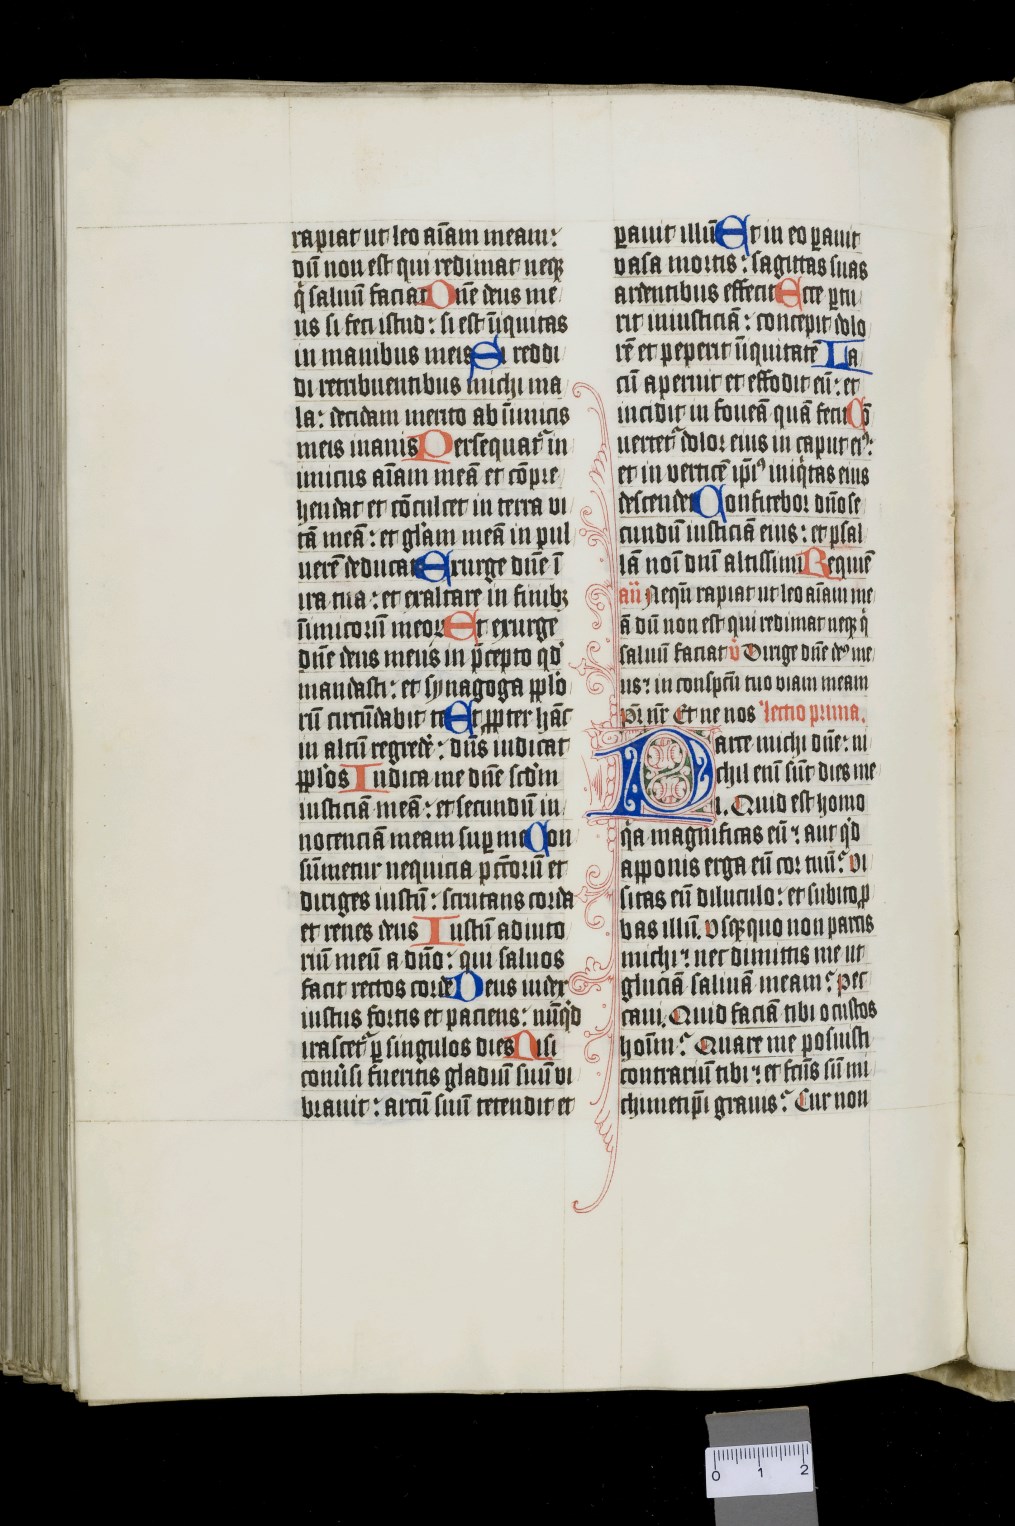 rapiat ut leo aīam meam:
dū non est qui redimat neqꝫ
q̇ saluū faciat Dn̄e deus me
us si feci istud: si est īiquitas
in manibus meis Si reddi
di retribuentibus michi ma
la: decidam merito ab īimicis
meis inanis Persequat᷑ in
imicus aīam meā et cōpre
hendat et cōculcet in terra vi
tā meā: et gl̄am meā in pul
uerē deducat Exurge dn̄e ī
ira tua: et exaltare in finibꝫ
īimicorū meoꝝ Et exurge
dn̄e deus meus in p̄cepto qd̓
mandasti: et synagoga pplo
rū circūdabit te Et ꝓpter hāc
in altū regredē: dn̄s iudicat
pplos Iudica me dn̄e scd̄m
iusticiā meā: et secundū in
nocenciā meam suꝑ me Con
sūmetur nequicia pctōrū et
diriges iustū: scrutans corda
et renes deus Iustū adiuto
riū meū a dn̄o: qui saluos
facit rectos corde Deus iudex
iustus fortis et paciens: nūq̇d
irascet᷑ ꝑ singulos dies Nisi
conu̓si fueritis gladiū suū vi
brauit: arcū suū tetendit et
parauit illū Et in eo ꝑauit
vasa mortis: sagittas suas
ardentibus effecit Ecce ꝑtu
rit iniusticiā: concepit dolo
rē et peperit īiquitatē La
cū aperuit et effodit eū: et
incidit in foueā quā fecit Cō
uertet᷑ dolor eius in caput eiꝰ:
et in verticē ip̄iꝰ iniq̇tas eius
descendet Confitebor dn̄o se
cundū iusticiā eius: et psal
lā noī dn̄i altissimi Requiē
an̄ Nequā rapiat ut leo aīam me
ā dū non est qui redimat neqꝫ q̇
saluū faciat v̓ Dirige dn̄e dꝰ me
us: in conspcū tuo viam meam
Pr̄ nr̄ Et ne nos lectio prima.
Parce michi dn̄e: ni
chil enī sūt dies me
i. Quid est homo
q̇a magnificas eū: aut q̇d
apponis erga eū cor tuū: Vi
sitas eū diluculo: et subito ꝓ
bas illū. Vsqꝫquo non parcis
michi: nec dimittis me ut
gluciā saliuā meam: Pec
caui. Quid faciā tibi o custos
hoīm: Quare me posuisti
contrariū tibi: et fcūs sū mi
chimetip̄i grauis: Cur non